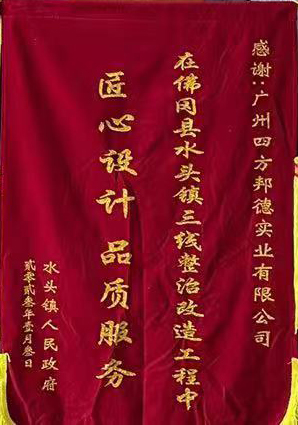 感谢：广州四方邦德实业有限公司
在佛冈县水头镇三线整治改造工程中
匠心设计 品质服务
水头镇人民政府
贰零贰叁年壹月叁日